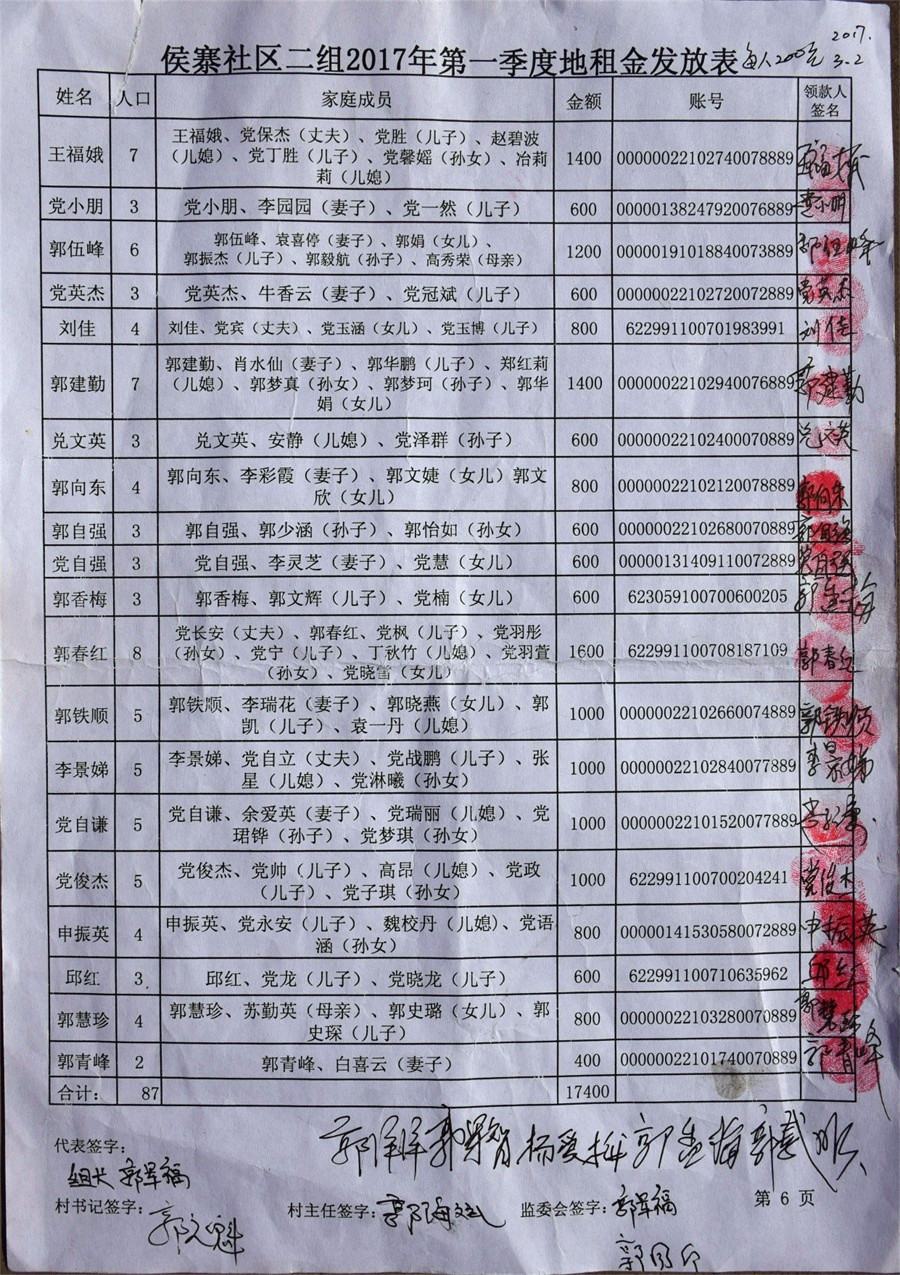 2017.
侯寨社区二组2017年第一季度地租金发放表 每人200元 3.2
姓名 人口 家庭成员 金额 账号 领款人
签名
王福娥、党保杰（丈夫）、党胜（儿子）、赵碧波
王福娥 7 （儿媳）、党丁胜（儿子）、党馨婳（孙女）、冶莉 1400 00000022102740078889 王福娥
莉（儿媳）
党小朋 3 党小朋、李园园（妻子）、党一然（儿子） 600 00000138247920076889 党小朋
郭伍峰、袁喜停（妻子）、郭娟（女儿）、
郭伍峰 6 郭振杰（儿子）、郭毅航（孙子）、高秀荣（母亲） 1200 00000191018840073889 郭伍峰
党英杰 3 党英杰、牛香云（妻子）、党冠斌（儿子） 600 00000022102720072889 党英杰
刘佳 4 刘佳、党宾（丈夫）、党玉涵（女儿）、党玉博（儿子） 800 622991100701983991 刘佳
郭建勤、肖水仙（妻子）、郭华鹏（儿子）、郑红莉
郭建勤 7 （儿媳）、郭梦真（孙女）、郭梦珂（孙子）、郭华 1400 00000022102940076889 郭建勤
娟（女儿）
兑文英 3 兑文英、安静（儿媳）、党泽群（孙子） 600 00000022102400070889 兑文英
郭向东、李彩霞（妻子）、郭文婕（女儿）郭文
郭向东 4 欣（女儿） 800 00000022102120078889 郭向东
郭自强 3 郭自强、郭少涵（孙子）、郭怡如（孙女） 600 00000022102680070889 郭自强
党自强 3 党自强、李灵芝（妻子）、党慧（女儿） 600 00000131409110072889 党自强
郭香梅 3 郭香梅、郭文辉（儿子）、党楠（女儿） 600 623059100700600205
党长安（丈夫）、郭春红、党枫（儿子）、党羽彤
郭春红 8 （孙女）、党宁（儿子）、丁秋竹（儿媳）、党羽萱 1600 622991100708187109 郭春红
（孙女）、党晓雷（女儿）
郭铁顺、李瑞花（妻子）、郭晓燕（女儿）、郭
郭铁顺 5 凯（儿子）、袁一丹（儿媳） 1000 00000022102660074889 郭铁顺
李景娣、党自立（丈夫）、党战鹏（儿子）、张
李景娣 5 星（儿媳）、党淋曦（孙女） 1000 00000022102840077889 李景娣
党自谦、余爱英（妻子）、党瑞丽（儿媳）、党
党自谦 5 珺铧（孙子）、党梦琪（孙女） 1000 00000022101520077889
党俊杰、党帅（儿子）、高昂（儿媳）、党政
党俊杰 5 （儿子）、党子琪（孙女） 1000 622991100700204241 党俊杰
申振英、党永安（儿子）、魏校丹（儿媳）、党语
申振英 4 涵（孙女） 800 00000141530580072889 申振英
邱红 3 邱红、党龙（儿子）、党晓龙（儿子） 600 622991100710635962 邱红
郭慧珍、苏勤英（母亲）、郭史璐（女儿）、郭
郭慧珍 4 史琛（儿子） 800 00000022103280070889 郭慧珍
郭青峰 2 郭青峰、白喜云（妻子） 400 00000022101740070889 郭青峰
合计： 87 17400
代表签字：
组长 郭军福
村书记签字： 村主任签字： 监委会签字：郭军福 第 6 页